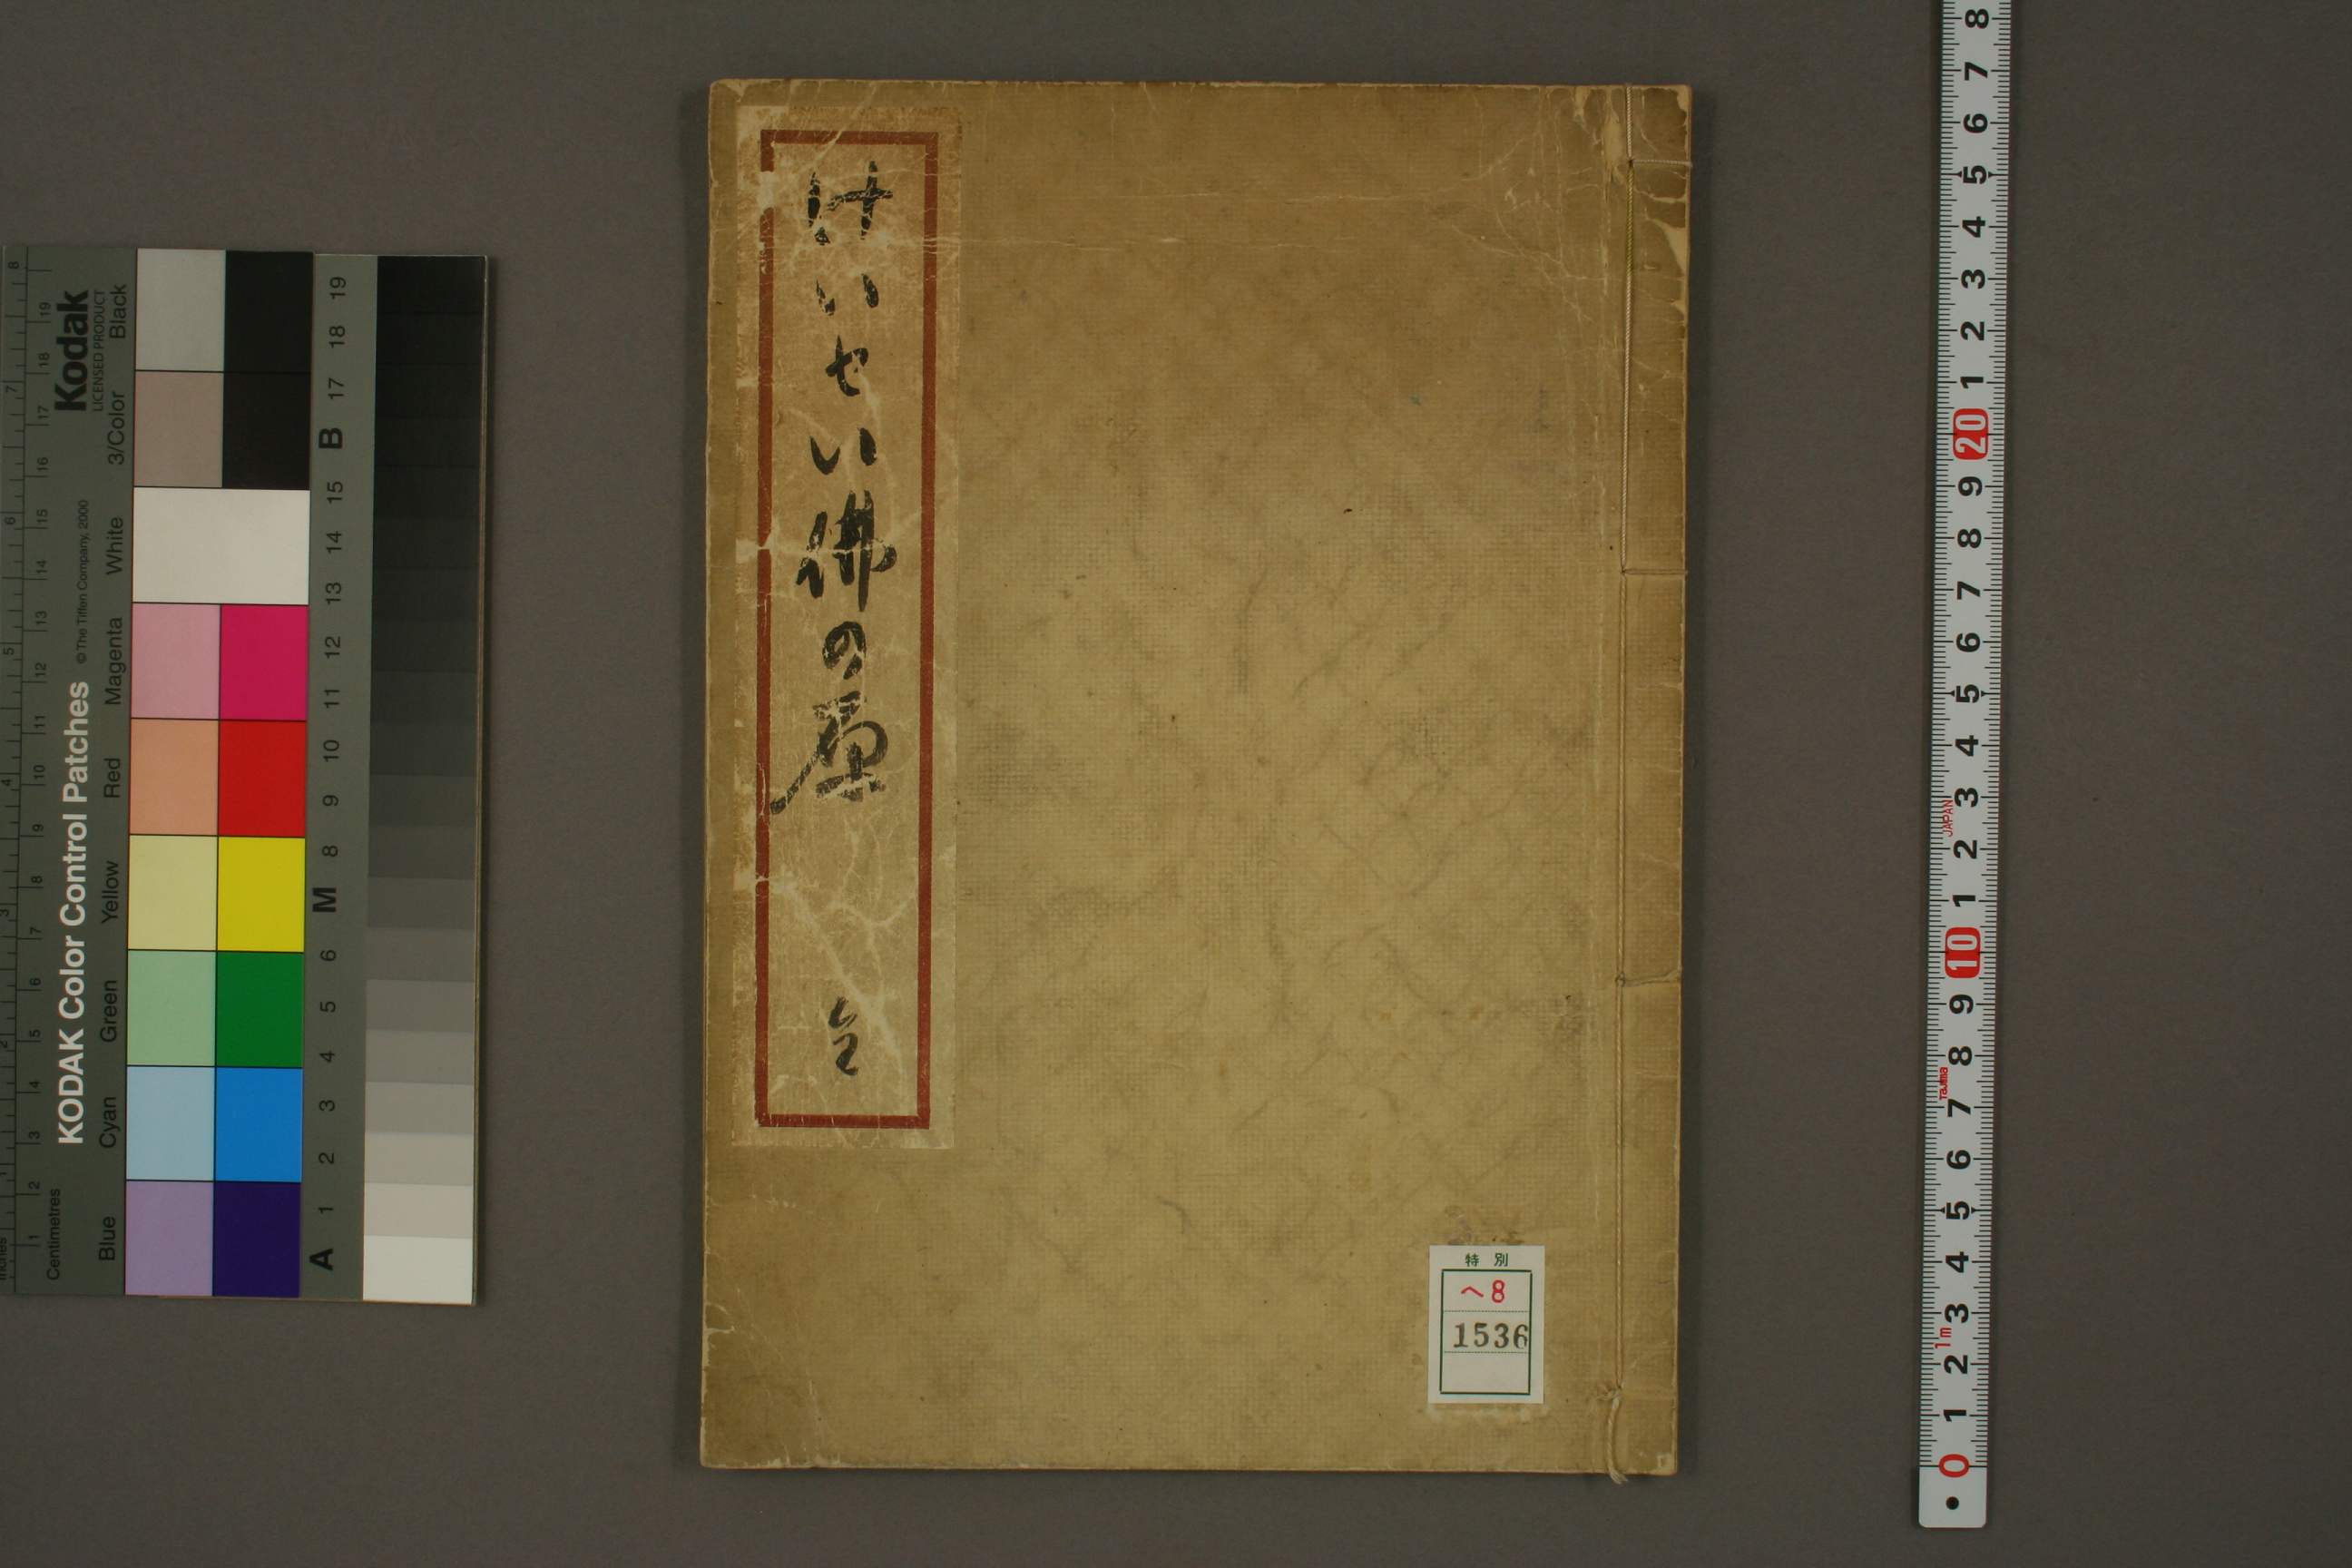 けいせい佛の原 全
特別
ヘ8
1536
KODAK Color Control Patches
Kodak
LICENSED PRODUCT
© The Tiffen Company, 2000
Centimetres
Blue Cyan Green Yellow Red Magenta White 3/Color Black
1 2 3 4 5 6 7 8 9 10 11 12 13 14 15 16 17 18 19
3 4 5 6 7 8
A 1 2 3 4 5 6 M 8 9 10 11 12 13 14 15 B 17 18 19
8 7 6 5 4 3 2 1 20 9 8 7 6 5 4 3 2 1 10 9 8 7 6 5 4 3 2 1 0
JAPAN
Tajima
1m